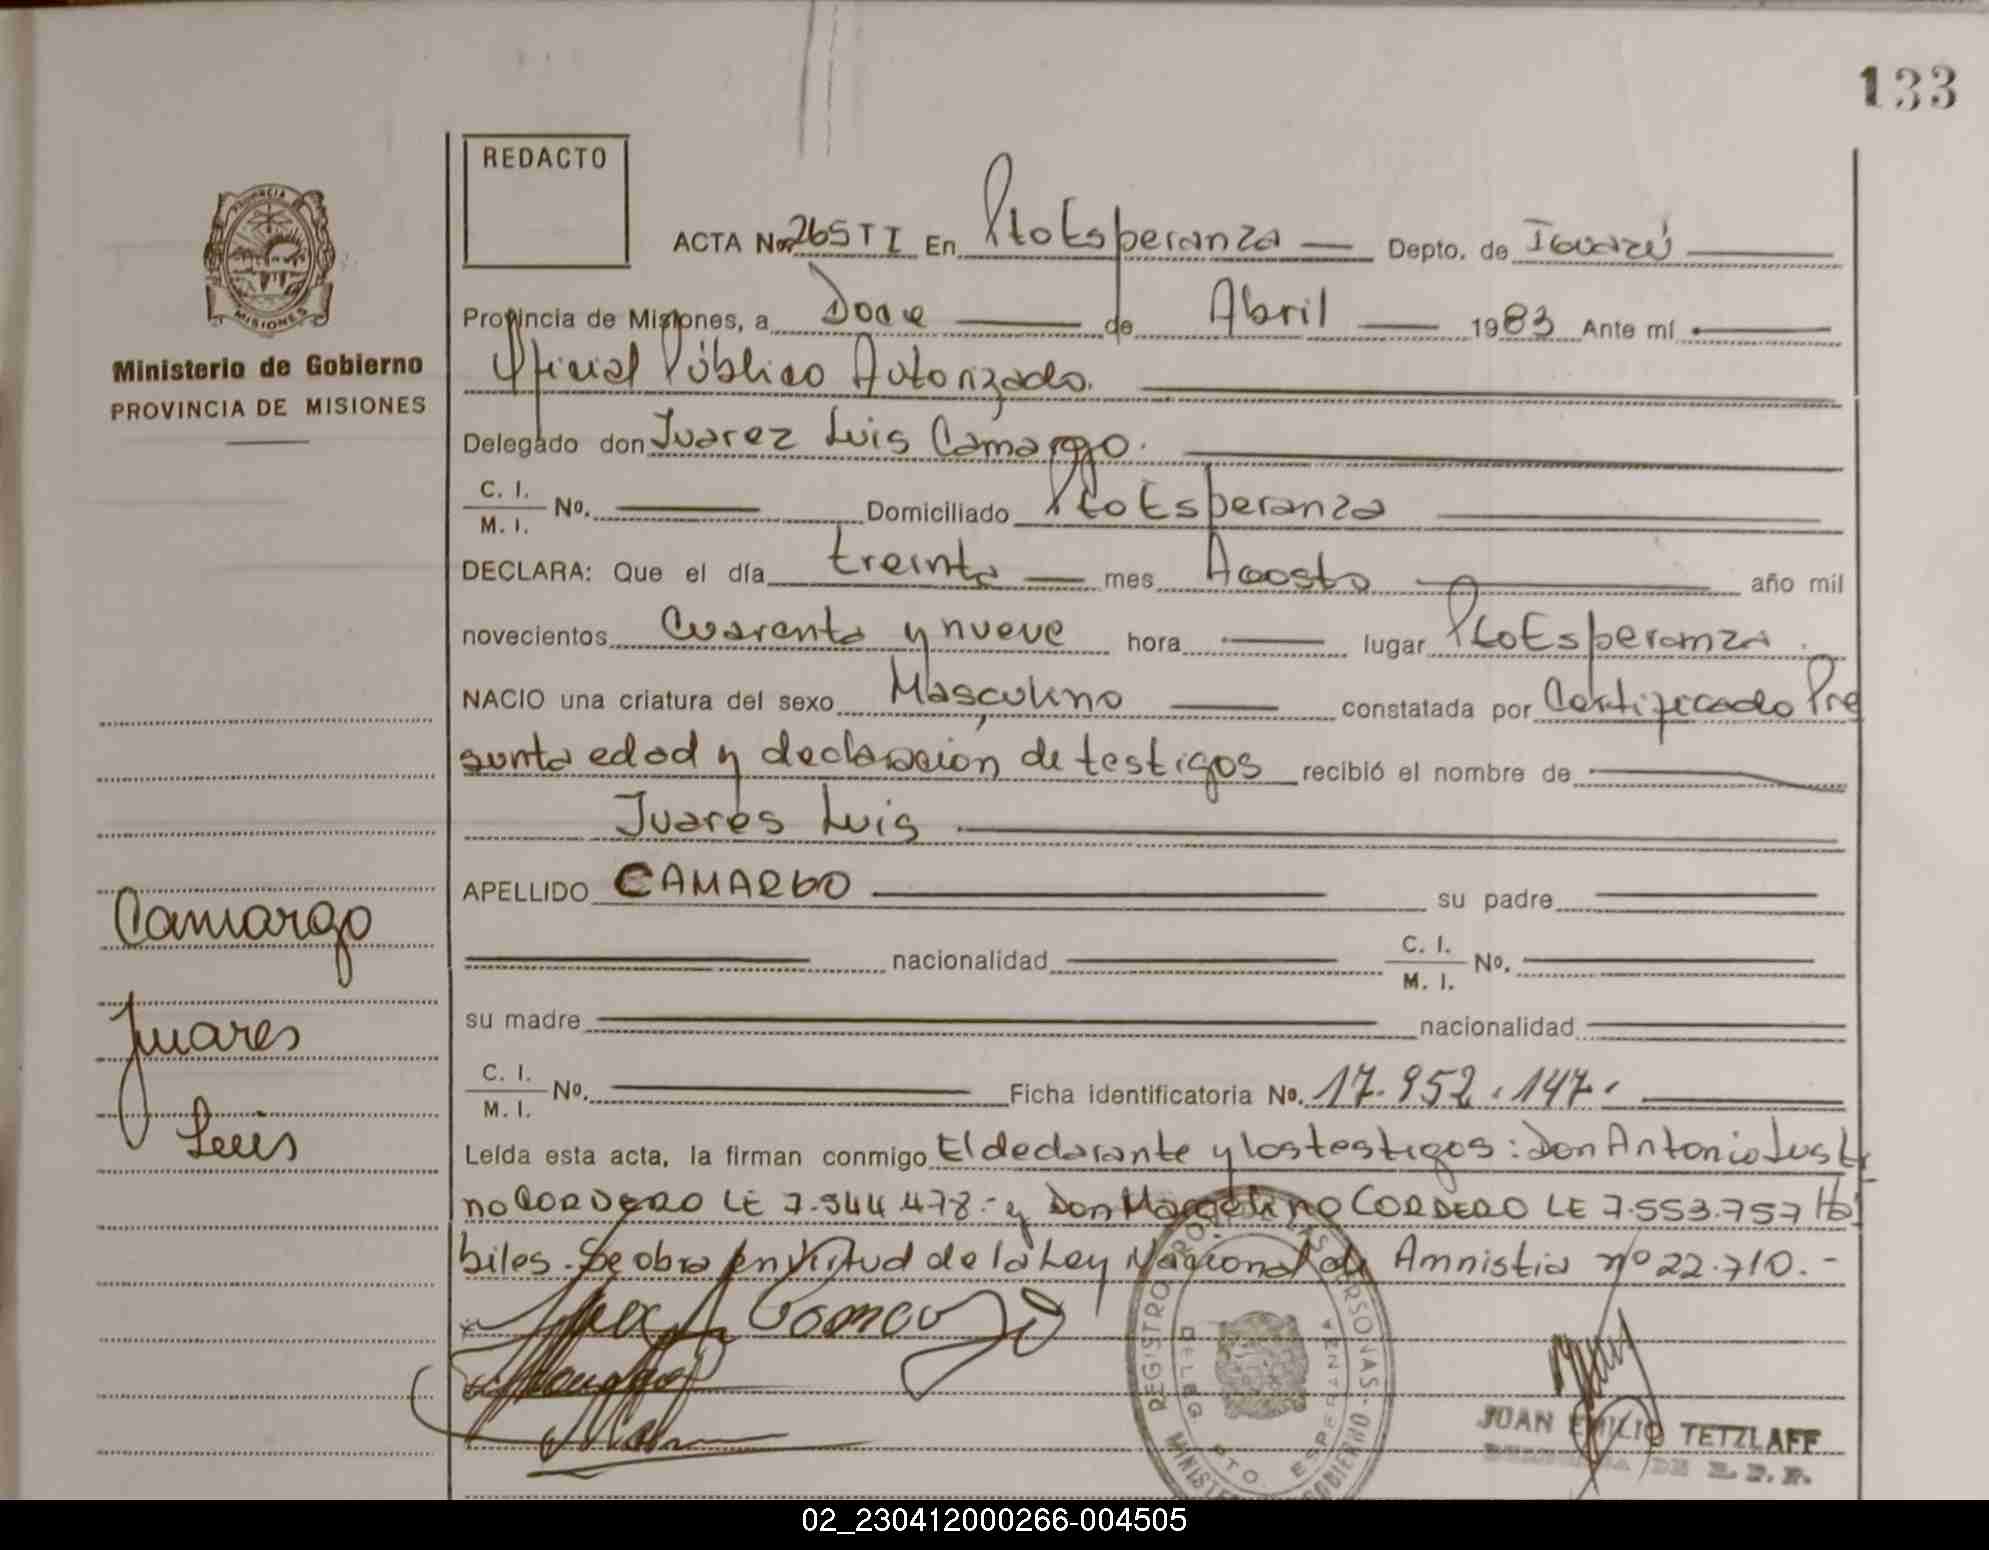 133
REDACTO
ACTA No. 265 T I En Pto Esperanza Depto. de Iguazú
Provincia de Misiones, a Doce de Abril 1983 Ante mí
Oficial Público Autorizado.
Delegado don Juarez Luis Camargo.
C. I. / M. I. No. Domiciliado Pto Esperanza
DECLARA: Que el día treinta mes Agosto año mil
novecientos Cuarenta y nueve hora lugar Pto Esperanza.
NACIO una criatura del sexo Masculino constatada por Certificado Pre
sunta edad y declaración de testigos recibió el nombre de
Juares Luis
APELLIDO CAMARGO su padre
nacionalidad C. I. / M. I. No.
su madre nacionalidad
C. I. / M. I. No. Ficha identificatoria No. 17.952.147.
Leída esta acta, la firman conmigo El declarante y los testigos: Don Antonio Justi
no CORDERO LE 7.544.478.- y Don Marcelino CORDERO LE 7.553.757 Há
biles. Se obra en virtud de la Ley Nacional de Amnistia nº 22.710.-
PROVINCIA
MISIONES
Ministerio de Gobierno
PROVINCIA DE MISIONES
Camargo
Juares
Luis
REGISTRO PERSONAS
DELEG PTO ESPERANZA
JUAN EMILIO TETZLAFF
02_230412000266-004505